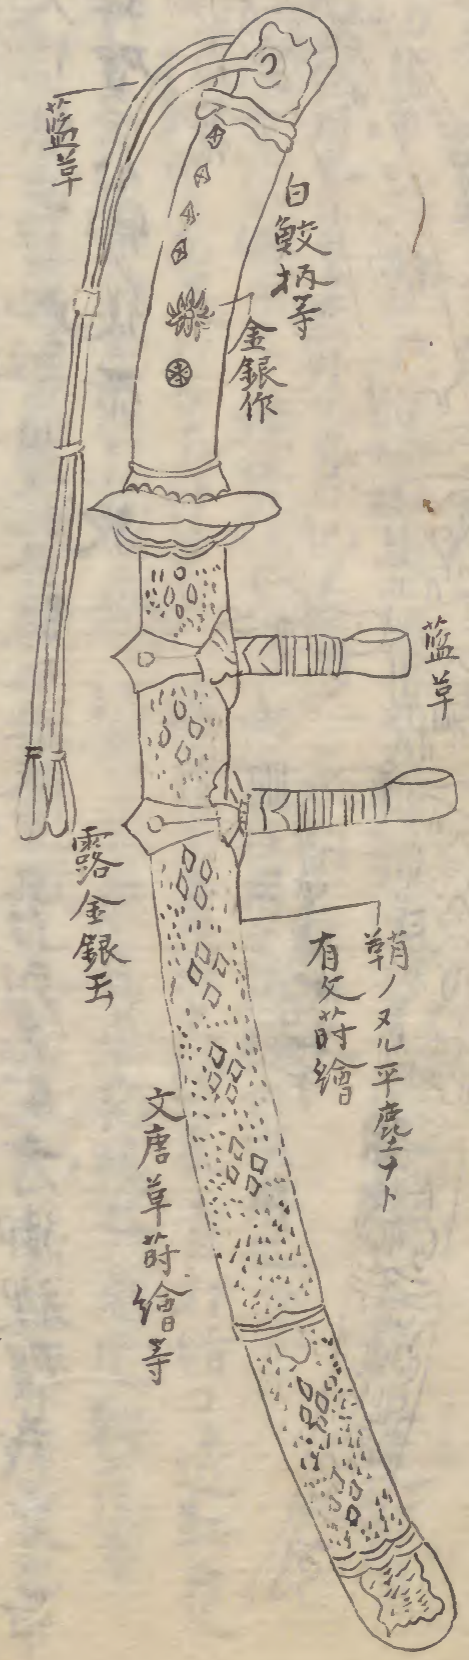 藍草
白鮫柄等
金銀作
藍草
露金銀玉
鞘ノヌル平塵ナト
有文蒔繪
文唐草蒔繪等